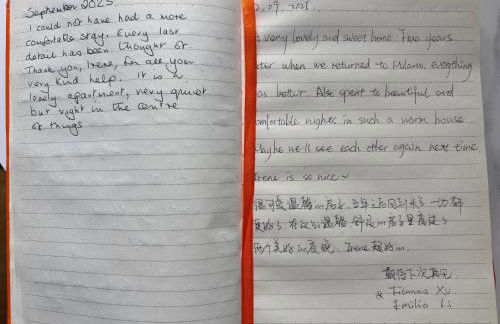 September 2025
I could not have had a more
comfortable stay. Every last
detail has been thought of
Thank you, Irene, for all your
very kind help. It is a
lovely apartment, very quiet
but right in the centre
of things
.09.2025.
A very lovely and sweet home. Five years
ter when we returned to Milano, everything
as better. Also spent to beautiful and
omfortable nights in such a warm house
Maybe we'll see each other again next time.
Irene is so nice~
很可爱温馨的房子,五年之后回到米兰一切都
更好了 在这么温馨、舒适的房子里度过了
两个美好的夜晚. Irene 超好的.
期待下次再见.
& Fianna Xu
Emilia Li